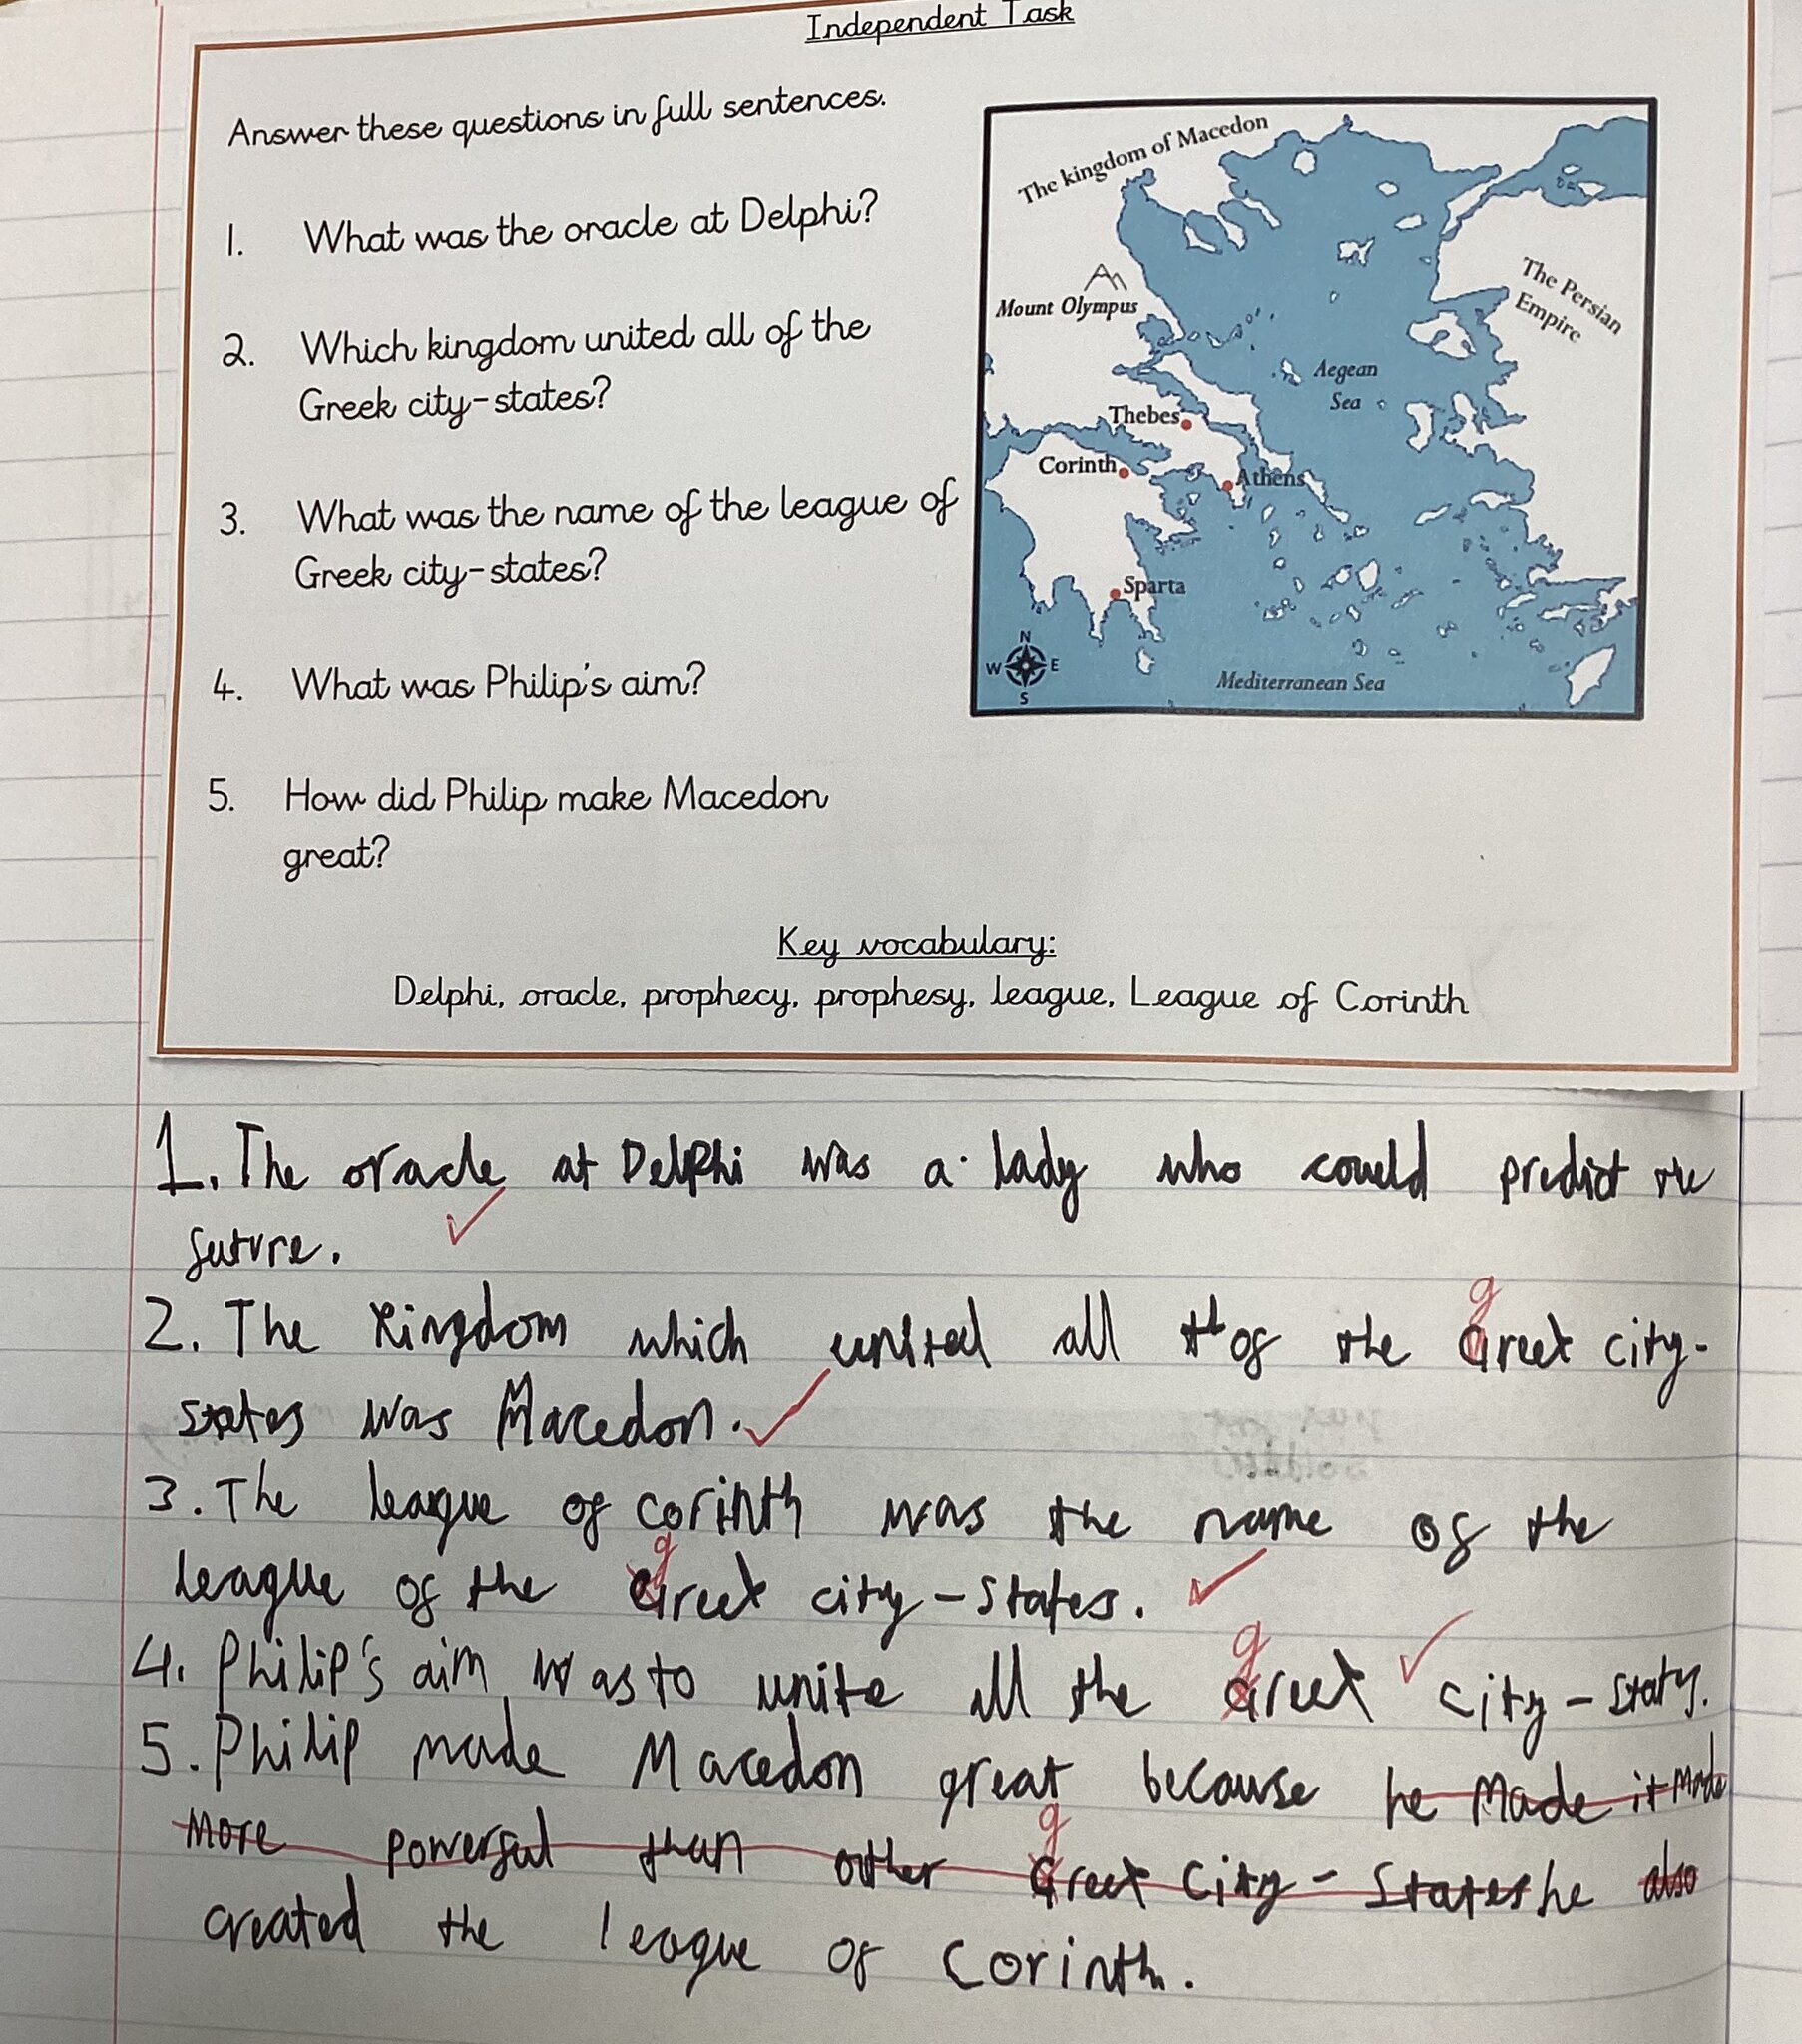 Independent Task
Answer these questions in full sentences.
1. What was the oracle at Delphi?
2. Which kingdom united all of the
Greek city-states?
3. What was the name of the league of
Greek city-states?
4. What was Philip's aim?
5. How did Philip make Macedon
great?
The kingdom of Macedon
Mount Olympus
The Persian
Empire
Aegean
Sea
Thebes
Corinth
Athens
Sparta
N
W E
S
Mediterranean Sea
Key vocabulary:
Delphi, oracle, prophecy, prophesy, league, League of Corinth
1. The oracle at Delphi was a lady who could predict the
future.
g
2. The Kingdom which united all th of the Greek city-
states was Macedon.
3. The league of corinth was the name of the
g
league of the Greek city-states.
g
4. Philip's aim was to unite all the Greek city-states.
5. Philip made Macedon great because he made it made
g
more powerful than other Greek city-states he also
created the league of Corinth.